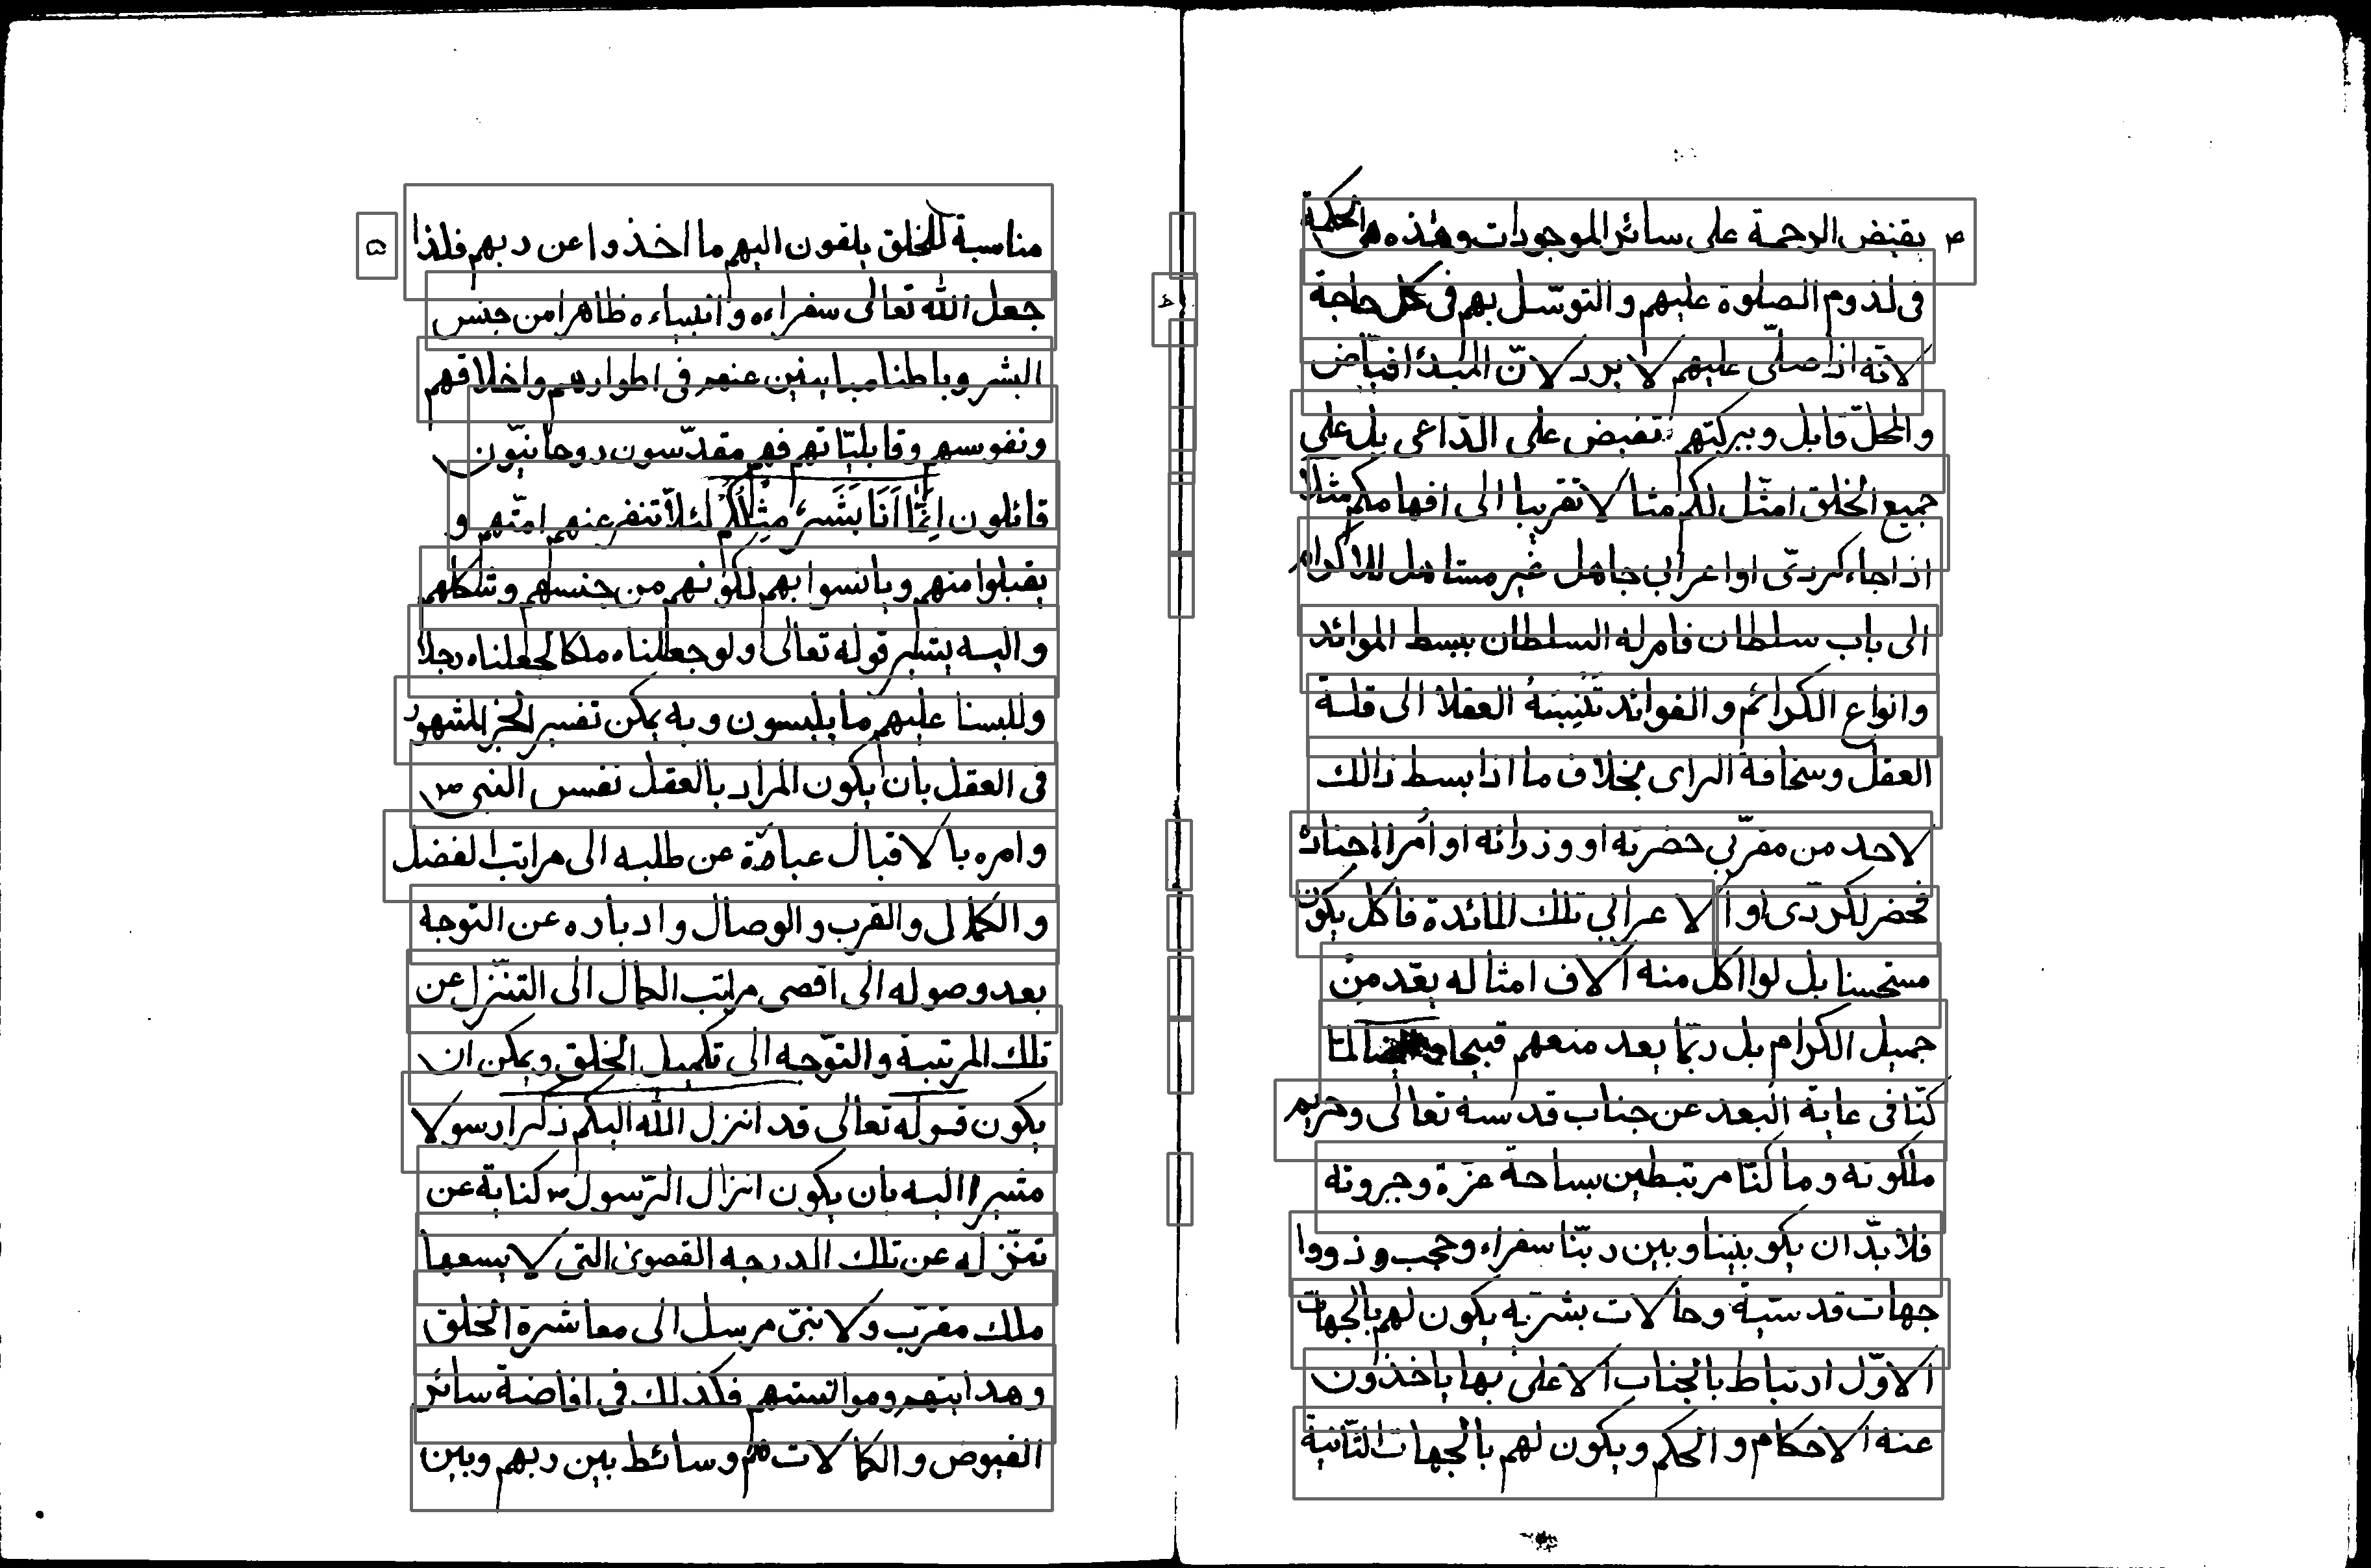 ٣ يفيض الرحمة على سائر الموجودات وهذه هى الحكمة
فى لزوم الصلوة عليهم و التوسّل بهم فى كل حاجة
لانّه اذا صلّى عليهم لا يرد لانّ المبدأ فيّاض
والمحلّ قابل وببركتهم تفيض على الدّاعى بل على
جميع الخلق امثّل لكم مثالا تقريبا الى افهامكم مثلا
اذا جاء كردىّ او اعرابى جاهل غير مستاهل للاكرام
الى باب سلطان فامر له السلطان ببسط الموائد
وانواع الكرائم و الفوائد تنسبه العقلا الى قلة
العقل وسخافة الراى بخلاف ما اذا بسط ذالك
لاحد من مقرّبى حضرته او وزرائه او أمرا اجناده
فحضر لكردّى او الاعرابى تلك المائدة فاكل يكون
مستحسنا بل لو اكل منه آلاف امثاله يعدّ من
جميل الكرام بل ربّما يعد منعهم قبيحا لمّا
كنّا فى غاية البعد عن جناب قدسه تعالى وحريم
ملكوته وما كنّا مرتبطين بساحة عزّة وجبروته
فلا بدّ ان يكو بيننا وبين ربّنا سفراء وحجب و ذووا
جهات قدسيّة وحالات بشريّه يكون لهم بالجهات
الاوّل ارتباط بالجناب الاعلى بها ياخذون
عنه الاحكام و الحكم ويكون لهم بالجهات الثّانية
مناسبة للخلق يلقون اليهم ما اخذوا عن ربهم فلذا
٥
جعل الله تعالى سفراءه و انبياءه ظاهرا من جنس
البشر وباطنا مباينين عنهم فى اطوارهم واخلاقهم
ونفوسهم وقابليّاتهم فهم مقدّسون روحانيّون
قائلون اِنَّما اَنَا بَشَرٌ مِثْلُكُمْ لئلّا تنفر عنهم امّتهم و
يقبلوا منهم ويانسوا بهم لكونهم من جنسهم وشكلهم
و اليه يشير قوله تعالى ولو جعلناه ملكا لجعلناه رجلا
وللبسنا عليهم ما يلبسون و به يمكن تفسير الخبر المشهور
فى العقل بان يكون المراد بالعقل نفس النبى ص
وامره بالاقبال عبارة عن طلبه الى مراتب الفضل
و الكمال والقرب و الوصال و ادباره عن التوجه
بعد وصوله الى اقصى مراتب الكمال الى التنّزل عن
تلك المرتبة و التوّجه الى تكميل الخلق ويمكن ان
يكون قوله تعالى قد انزل الله اليكم ذكرا رسولا
مشيرا اليه بان يكون انزال الرّسول ص كناية عن
تنزّله عن تلك الدرجه القصوى التى لا يسعها
ملك مقرّب ولا نبىّ مرسل الى معاشرة الخلق
وهدايتهم وموانستهم فكذلك فى افاضة سائر
الفيوض و الكمالات هم وسائط بين ربهم وبين